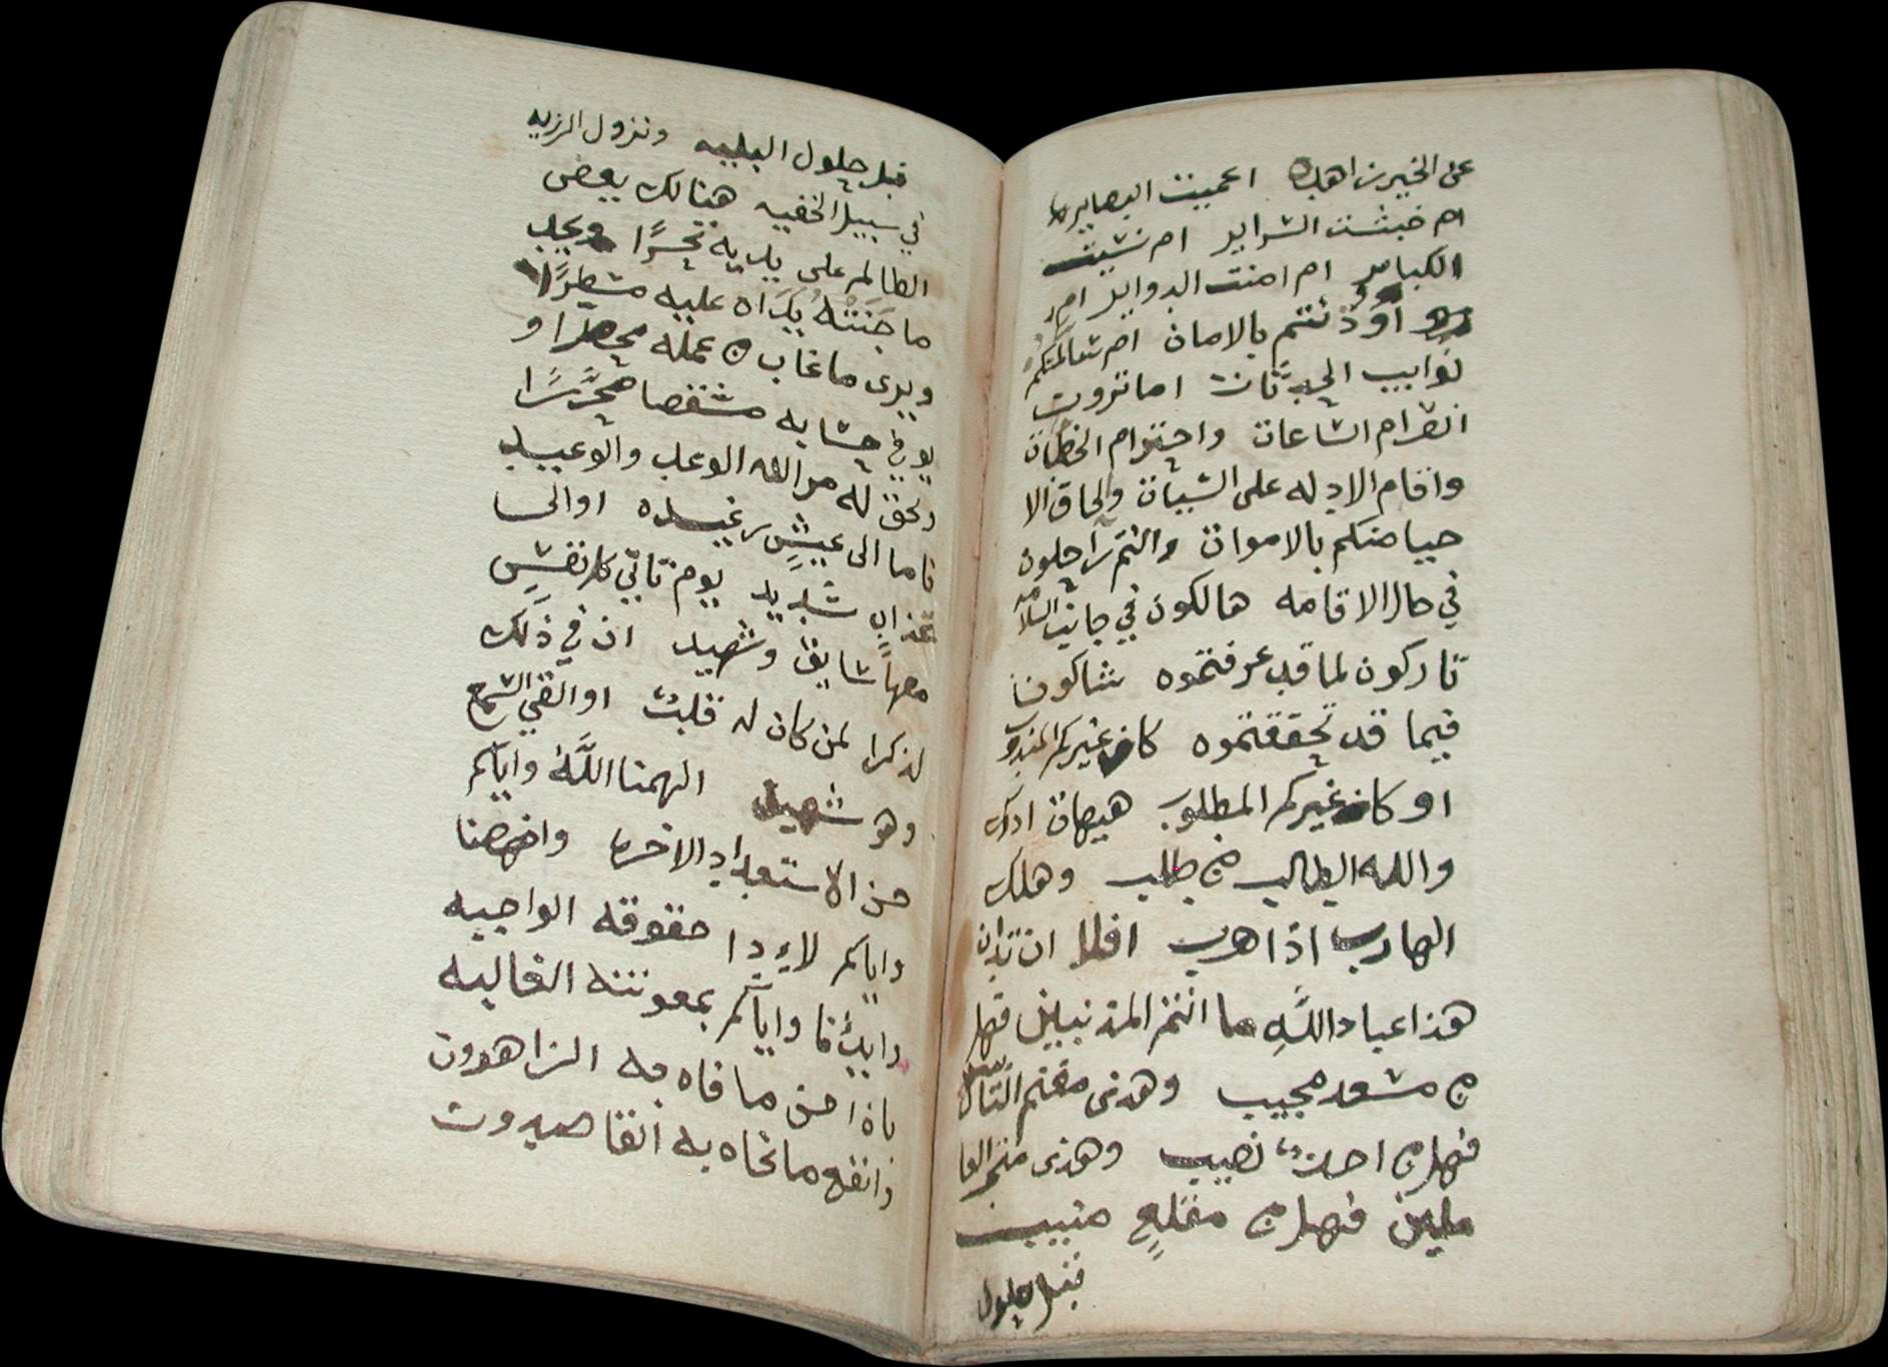 عن الخيرت اهله اعميت البصاير
ام خبثت السراير ام نسيت
الكباير ام امنت الدواير ام
اوذنتم بالامان ام سالمتكم
نوايب الحدثان اما ترون
انصرام الساعات واخترام الخطات
واقام الادله على الشتات والحاق الا
حيا منكم بالاموات وانتم راحلون
في حال الاقامه هالكون في جانب السلامه
تاركون لما قد عرفتموه شاكون
فيما قد تحققتموه كان غيركم المندوب
او كان غيركم المطلوب هيهات ادرك
والله الطالب من طلب وهلك
الهارب اذا هرب افلا ان
هذا عباد الله ماتم المذنبين فهل
من مسعد مجيب وهذى مغنم التايبين
فهل من اخذ نصيب وهذى متجر العا
ملين فهل من مقلع منيب
قبل حلول
قبل حلول البليه ونزول الرزيه
في سبيل الخفيه هنالك يعض
الظالم على يديه تحسرًا ويجد
ما جنته يَدَاه عليه مسطرًا
ويرى ما غاب من عمله محصلا و
يوفى حسابه محررًا
وحق له من الله الوعد والوعيد
فاما الى عيشٍ رغيده او الى
عذاب شديد يوم تاتي كل نفسٍ
معها سايق وشهيد ان في ذلك
لذكرا لمن كان له قلبٌ او القى السمع
وهو شهيد الهمنا اللَّهُ واياكم
حسن الاستعداد الاخره وانهضنا
واياكم لاءدا حقوقه الواجبه
وايدنا واياكم بمعونته الغاليه
باذا حسن ما فاه به الزاهدون
وانفع ما تحاه به القاصدون